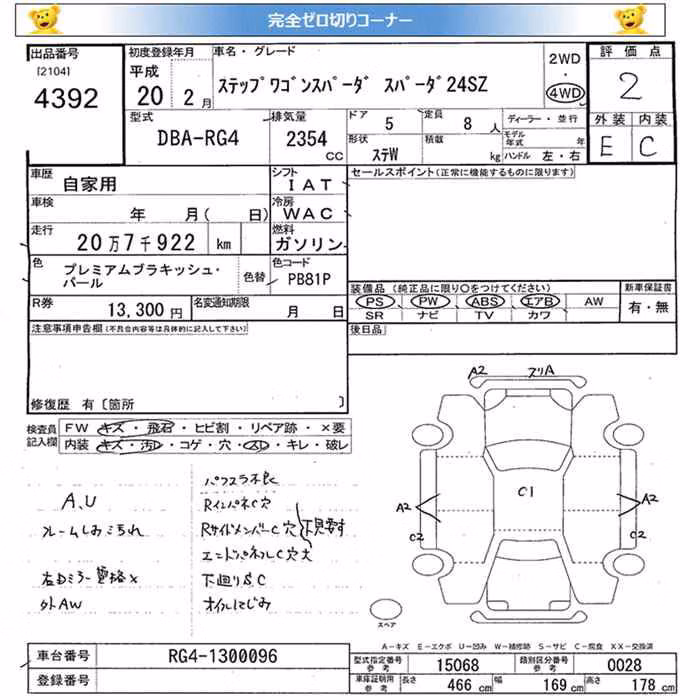 完全ゼロ切りコーナー
出品番号 初度登録年月 車名・グレード 評価点
[2104] 平成 2WD
4392 20 2月 ステップワゴンスパーダ スパーダ24SZ ・ 2
4WD
型式 排気量 ドア 5 定員 8人 ディーラー・並行 外装 内装
DBA-RG4 2354 CC 形状 ステW 積載 kg モデル年式 年 E C
ハンドル 左・右
車歴 自家用 シフト IAT セールスポイント(正常に機能するものに限ります)
車検 年 月( 日) 冷房 WAC
走行 20万7千922 km 燃料 ガソリン
色 プレミアムブラキッシュ・パール 色替 色コード PB81P
装備品(純正品に限り○をつけてください) 新車保証書
PS PW ABS エアB AW 有・無
R券 13,300円 名変通知期限 月 日 SR ナビ TV カワ
注意事項申告欄(不具合内容等は具体的に記入して下さい) 後日品
修復歴 有〔箇所 〕
検査員記入欄 FW キズ・飛石・ヒビ割・リペア跡・×要
内装 キズ・汚レ・コゲ・穴・スレ・キレ・破レ
A2 スリA
パワスラ不良
A、U RインパネC穴
フレームしみ汚れ RサイドメンバーC穴 下見要す
エンドパネルC穴大
右Dミラー電格× 下廻りS、C
外AW オイルにじみ
C1
A2 A2
C2 C2
スペア
A-キズ E-エクボ U-凹み W-補修跡 S-サビ C-腐食 XX-交換済
車台番号 RG4-1300096 型式指定番号 参考 15068 類別区分番号 参考 0028
登録番号 車庫証明用 参考 長さ 466cm 幅 169cm 高さ 178cm